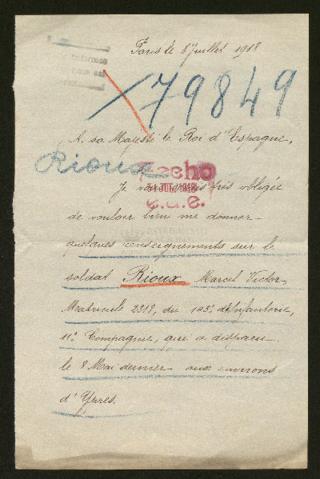 Paris le 8 juillet 1918
179849
A sa Majesté le Roi d'Espagne,
Rioux
Hecho
31 JUL. 1918
Je vous serais très obligée
de vouloir bien me donner
quelques renseignements sur le
soldat Rioux Marcel Victor
Matricule 2319, du 105e d'Infanterie,
11e Compagnie, qui a disparu
le 8 Mai dernier aux environs
d'Ypres.